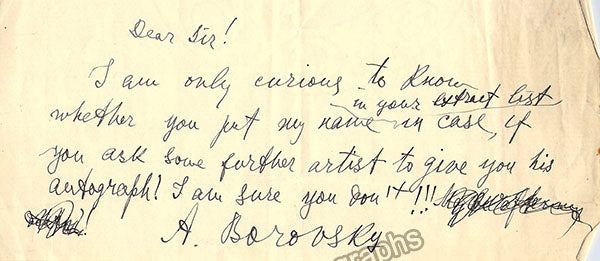 Dear Sir!
I am only curious to know
in your extract list
whether you put my name in case, if
you ask some further artist to give you his
autograph! I am sure you don't!!!
A. Borovsky
graphs